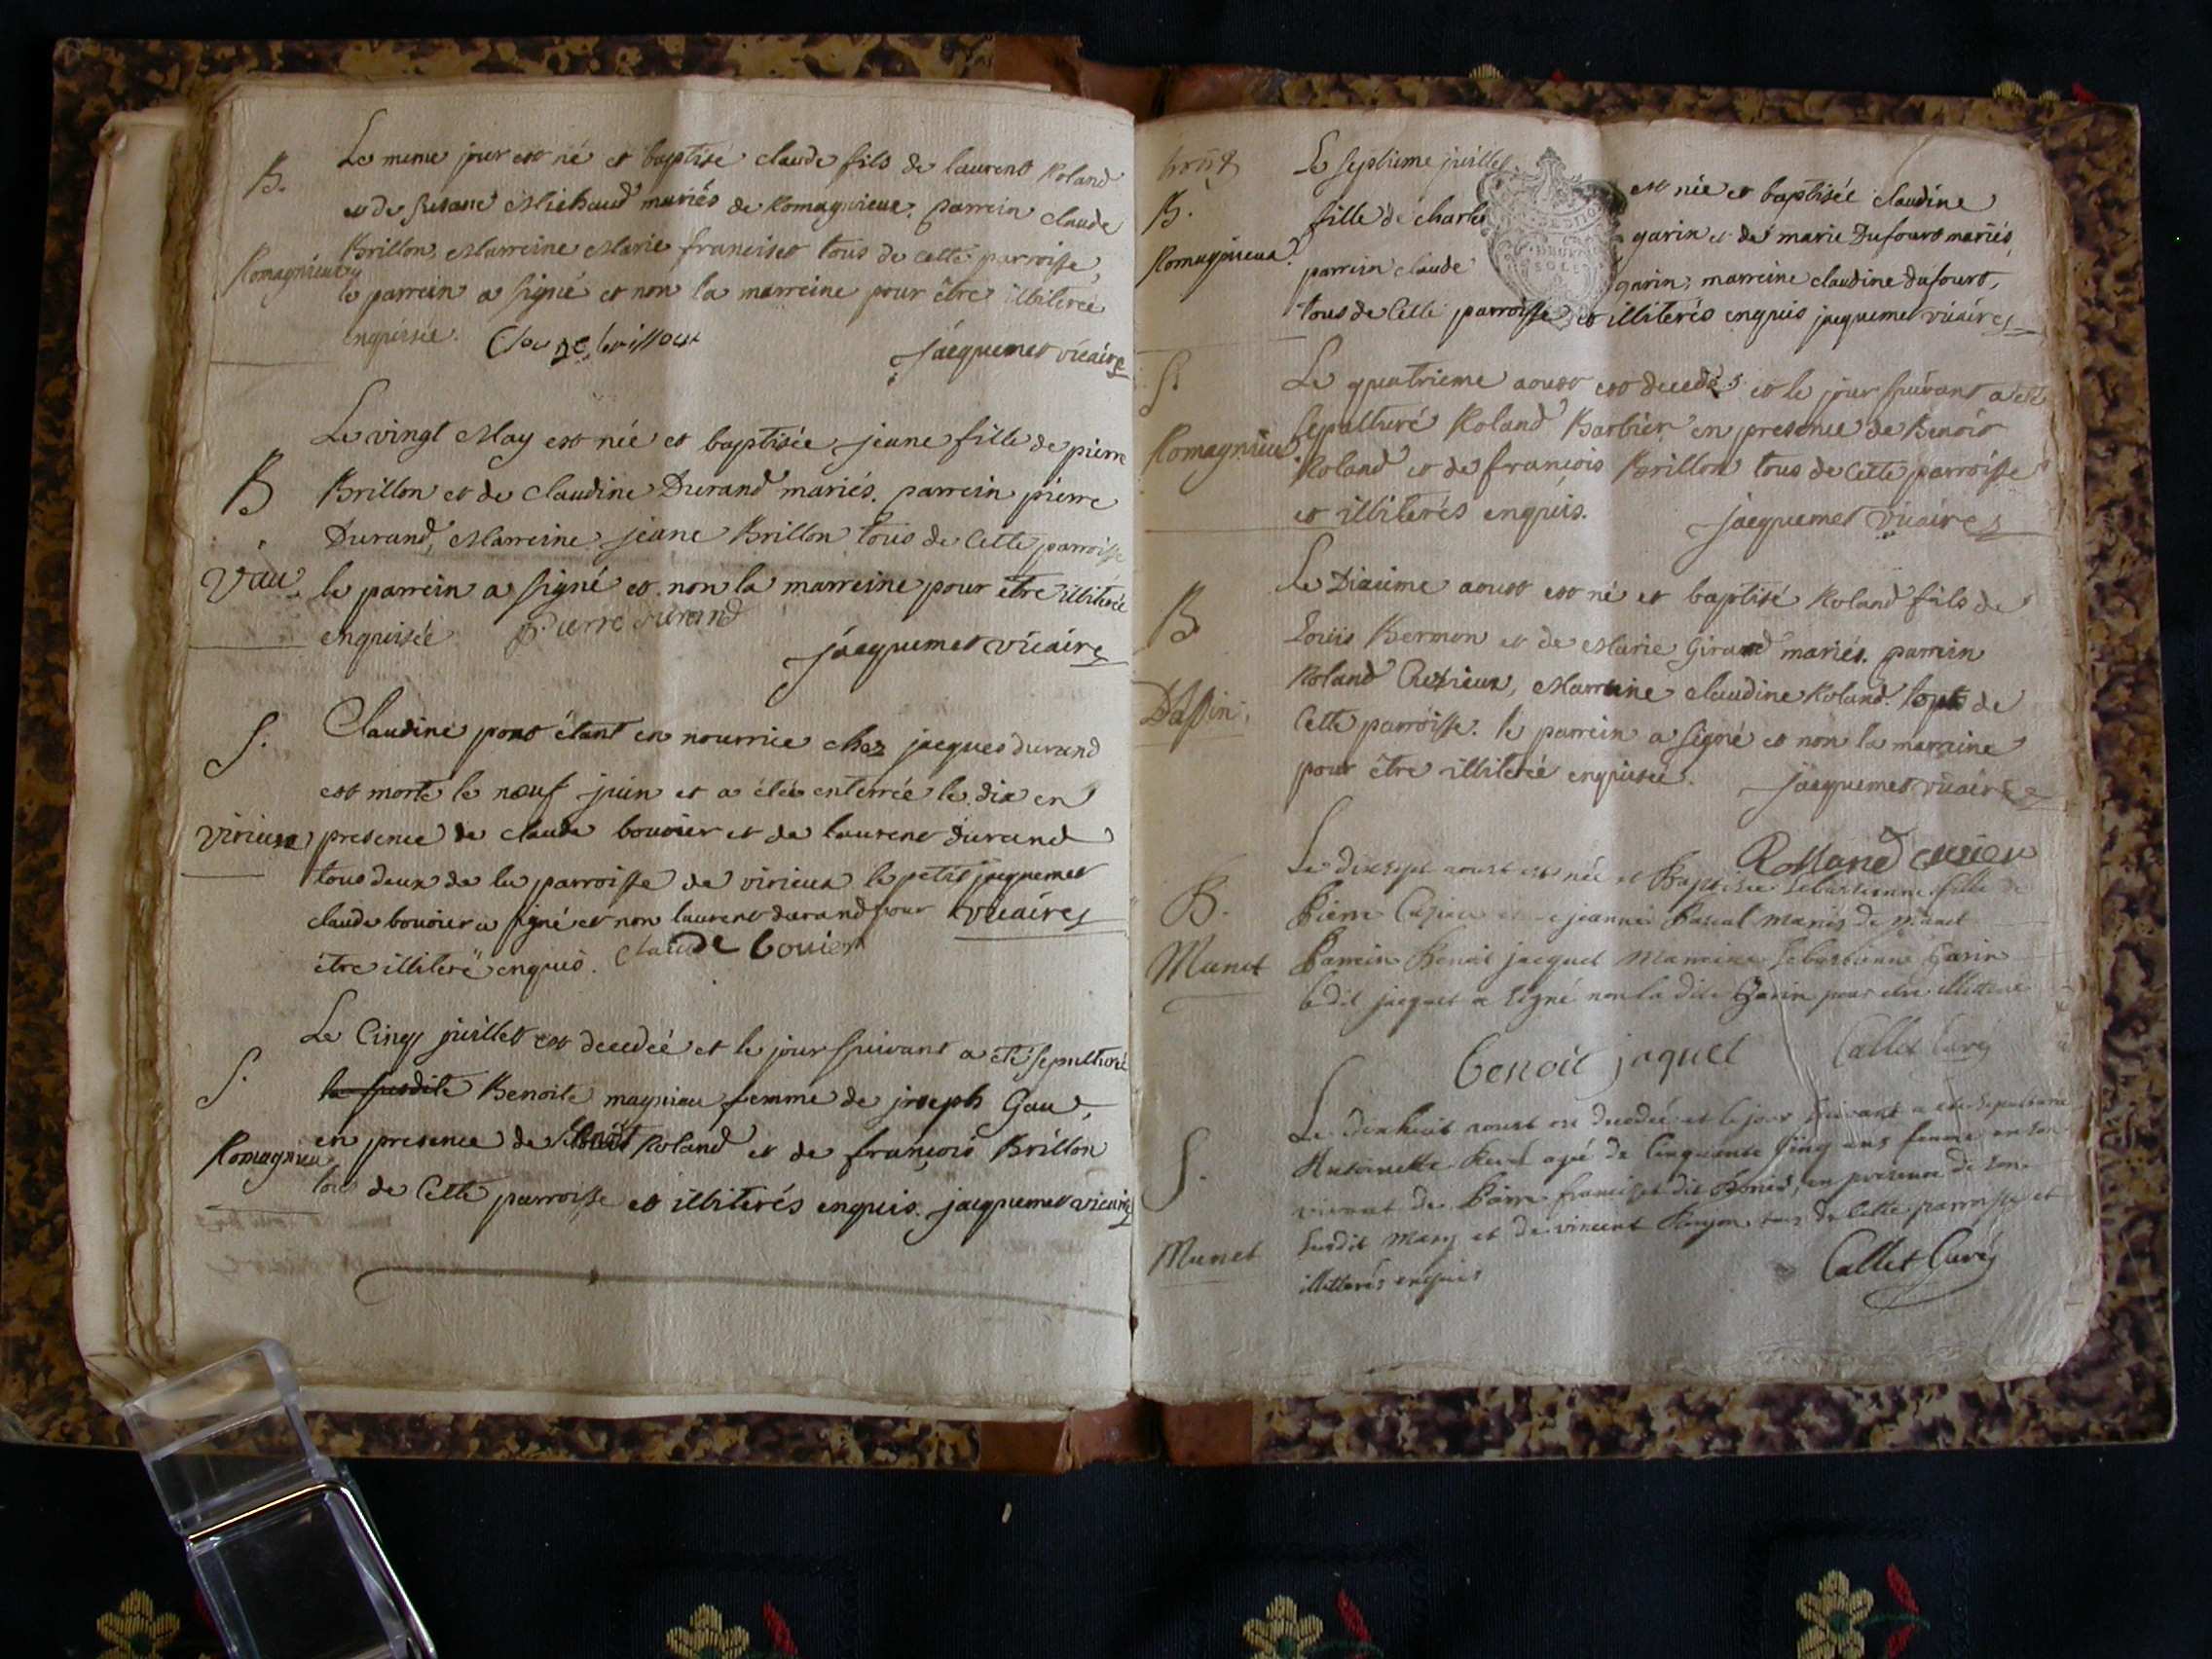 B.
Le meme jour est né et baptisé claude fils de laurent Roland
et de susane Michaud mariés de Romagnieux. parrein claude
Brillon, Marreine Marie franciset tous de cette parroisse,
Romagnieux
le parrein a signé et non la marreine pour être illiterée
enquisée.
jacquemet vicaire
Le vingt May est née et baptisée jeane fille de pierre
B
Brillon et de Claudine Durand mariés. parrein pierre
Durand, Marreine jeane Brillon tous de Cette parroisse
Vau
le parrein a signé et non la marreine pour être illiterée
enquisée Pierre durand
jacquemet vicaire
S.
Claudine pont étant en nourrice chez jacques durand
est morte le neuf juin et a étée enterrée le dix en
virieux
presence de claude bouvier et de laurent durand
tous deux de la parroisse de virieux le petit jacquemet
claude bouvier a signé et non laurent durand pour vicaire
être illiteré enquis. claude bouvier
Le Cinq juillet est decedée et le jour suivant a eté sepulturé
S.
la susdite Benoite magnieu femme de joseph Gau,
en presence de Roland et de françois Brillon
Romagnieu
tous de Cette parroisse et illiterés enquis. jacquemet vicaire
Le septieme juillet est née et baptisée claudine
B.
fille de charle garin et de marie Dufourt mariés
Romagnieux.
parrein claude garin, marreine claudine dufourt,
tous de Cette parroisse et illiterés enquis jacquemet vicaire
S.
Le quatrieme aoust est decedé et le jour suivant a été
sepulturé Roland Barbier en presence de Benoit
Romagnieu
Roland et de françois Brillon tous de Cette parroisse
et illiterés enquis. jacquemet vicaire
Le Dixieme aoust est né et baptisé Roland fils de
B
Louis Bermon et de Marie Girard mariés. parrein
Roland Cuzieux, Marreine Claudine Roland. tous de
Dassin
Cette parroisse. le parrein a signé et non la marreine
pour être illiterée enquisée. jacquemet vicaire
Rolland
Le dixsept aoust est née et Baptisée sebastienne fille de
B.
Pierre et de jeanne Pascal mariés de Munet
Munet
Parrein Benoit jacquet Marreine sebastienne Garin
ledit jacquet a signé non la dite Garin pour etre illitterée
Benoit jaquet Callet Curé
Le dixhuit aoust est decedée et le jour suivant a eté sepulturée
S.
Antoinette agé de Cinquante Cinq ans femme en son
vivant de Pierre francizet dit en presence de son
susdit Mary et de vincent tous de Cette parroisse et
Munet
illitterés enquis Callet Curé